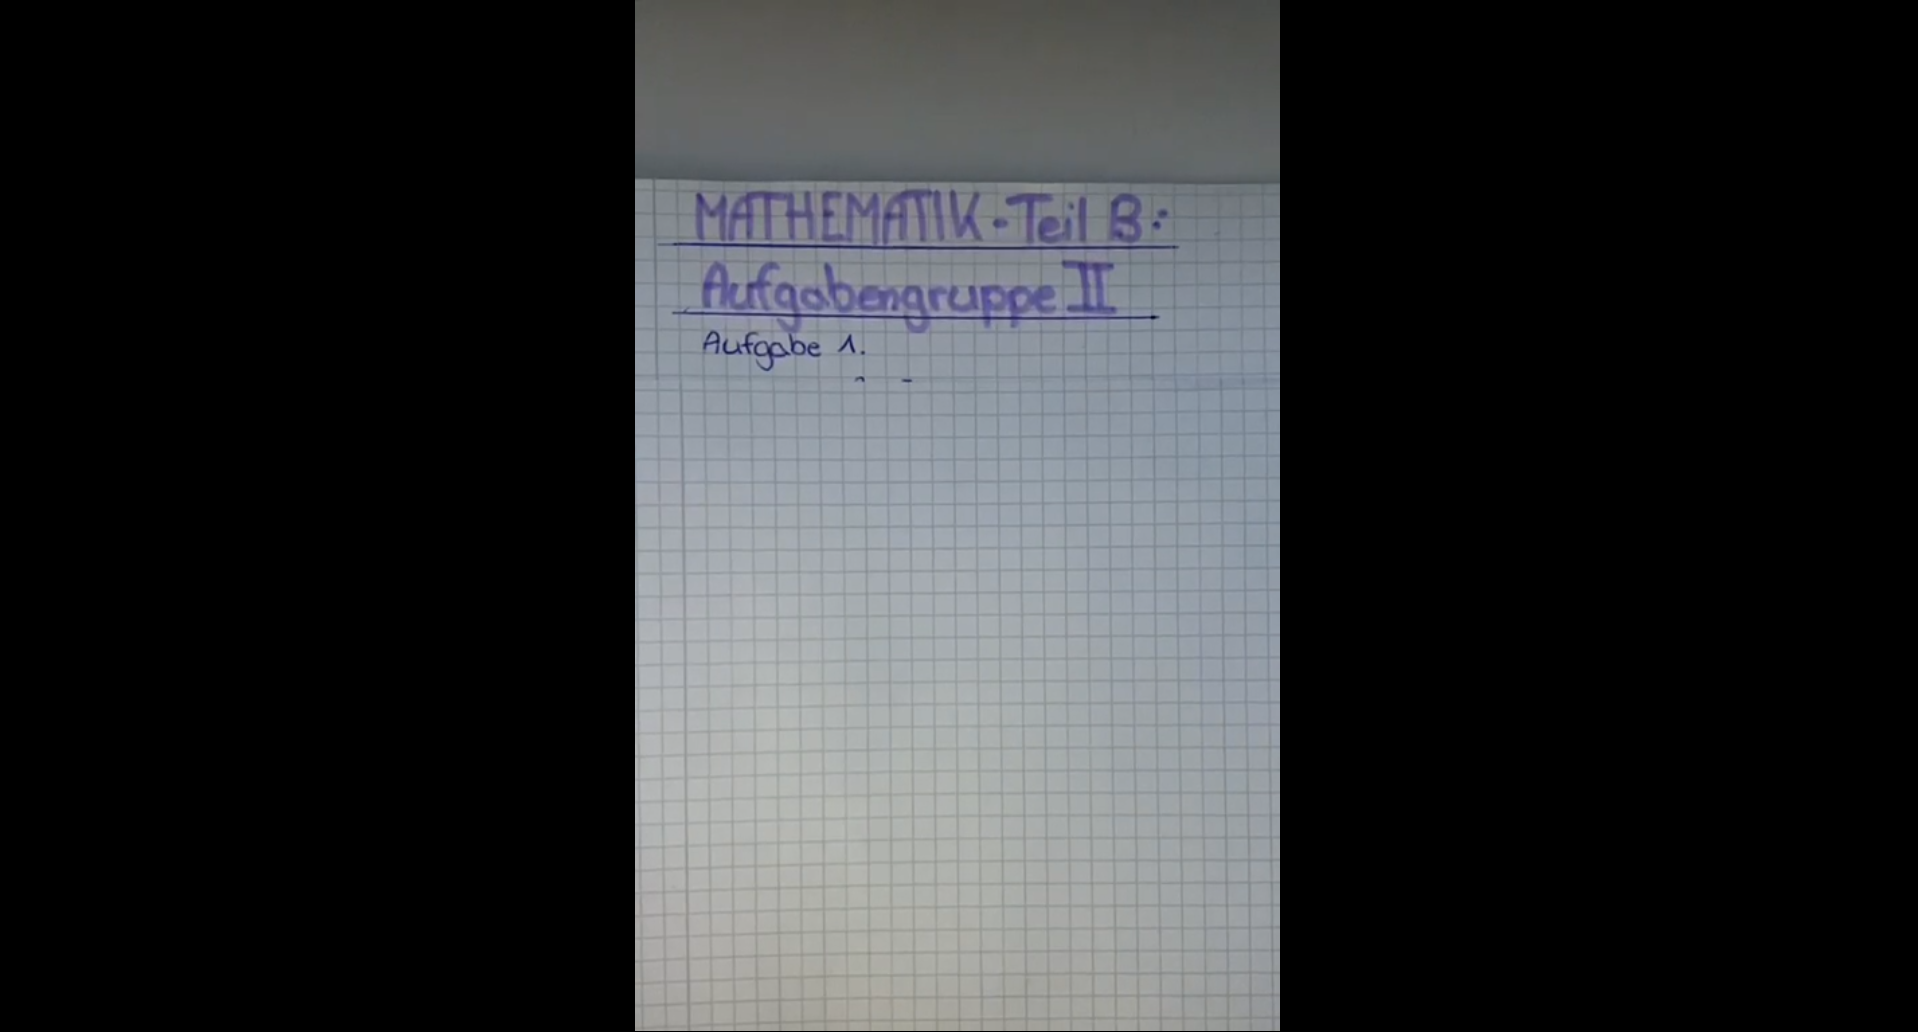 MATHEMATIK-Teil B:
Aufgabengruppe II
Aufgabe 1.